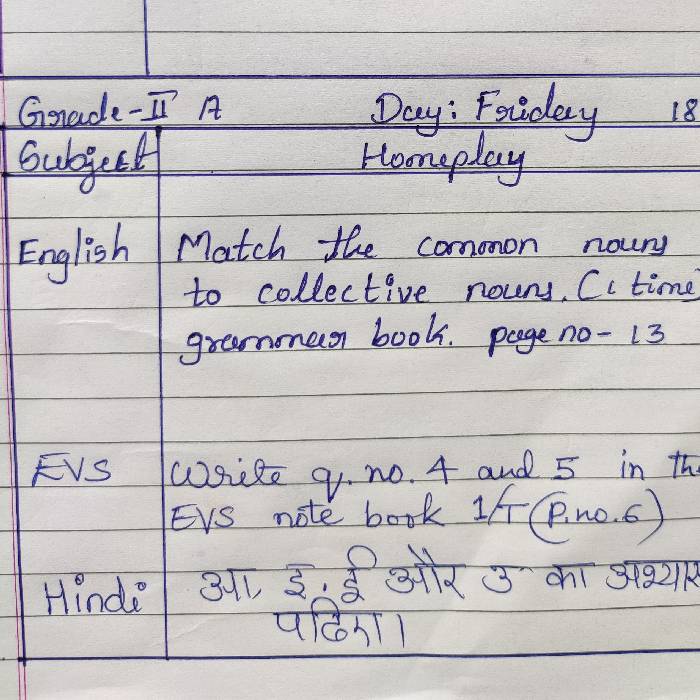 Grade-II A Day: Friday 18
Subject Homeplay
English Match the common nouns
to collective nouns. (1 time
grammar book. page no- 13
EVS Write q. no. 4 and 5 in the
EVS note book 1/T (P.no.6)
Hindi आ, इ, ई और उ का
पढिए।